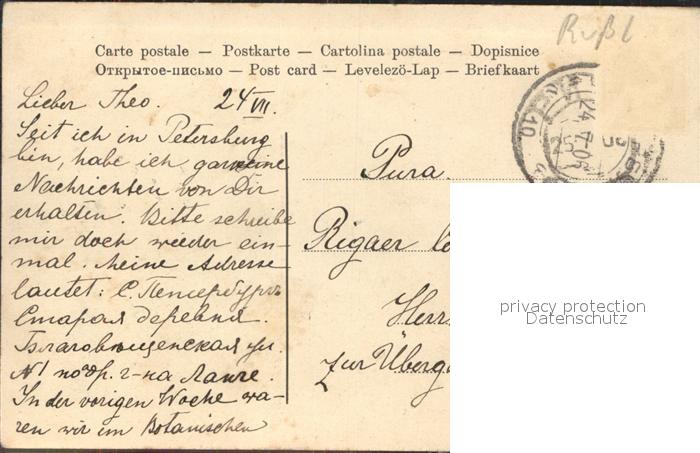 Rußl
Carte postale — Postkarte — Cartolina postale — Dopisnice
Открытое-письмо — Post card — Levelezö-Lap — Briefkaart
Lieber Theo. 24 VII.
Seit ich in Petersburg
bin, habe ich gar keine
Nachrichten von Dir
erhalten. Bitte schreibe
mir doch wieder ein-
mal. Meine Adresse
lautet: С. Петербургъ
Старая деревня.
Благовѣщенская ул.
№1
In der vorigen Woche wa-
ren wir im Botanischen
Pura.
Rigaer
Herrn
zur
privacy protection
Datenschutz